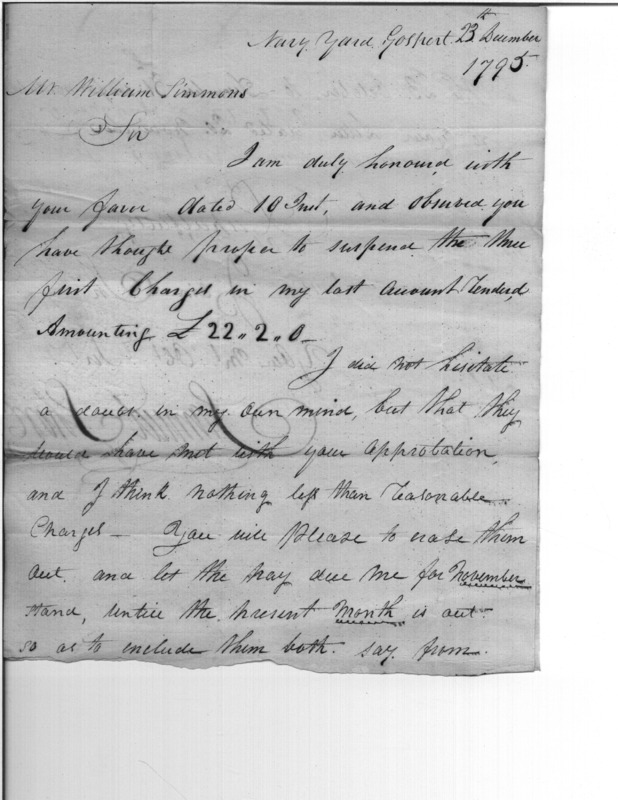 Navy Yard Gosport 23th December
1795.
Mr. William Simmons
Sir
I am duly honoured, with
your favor dated 10 Inst, and observed you
have thought proper to suspend the three
first Charges in my last account Tenderd,
Amounting £22„2„0—
I did not hisitate
a doubt, in my own mind, but that they
would have met with your approbation,
and I think nothing less than reasonable
Charges— You will please to erase them
out. and let the pay due me for November
stand, untill the present Month is out.
so as to include them both. say. from.